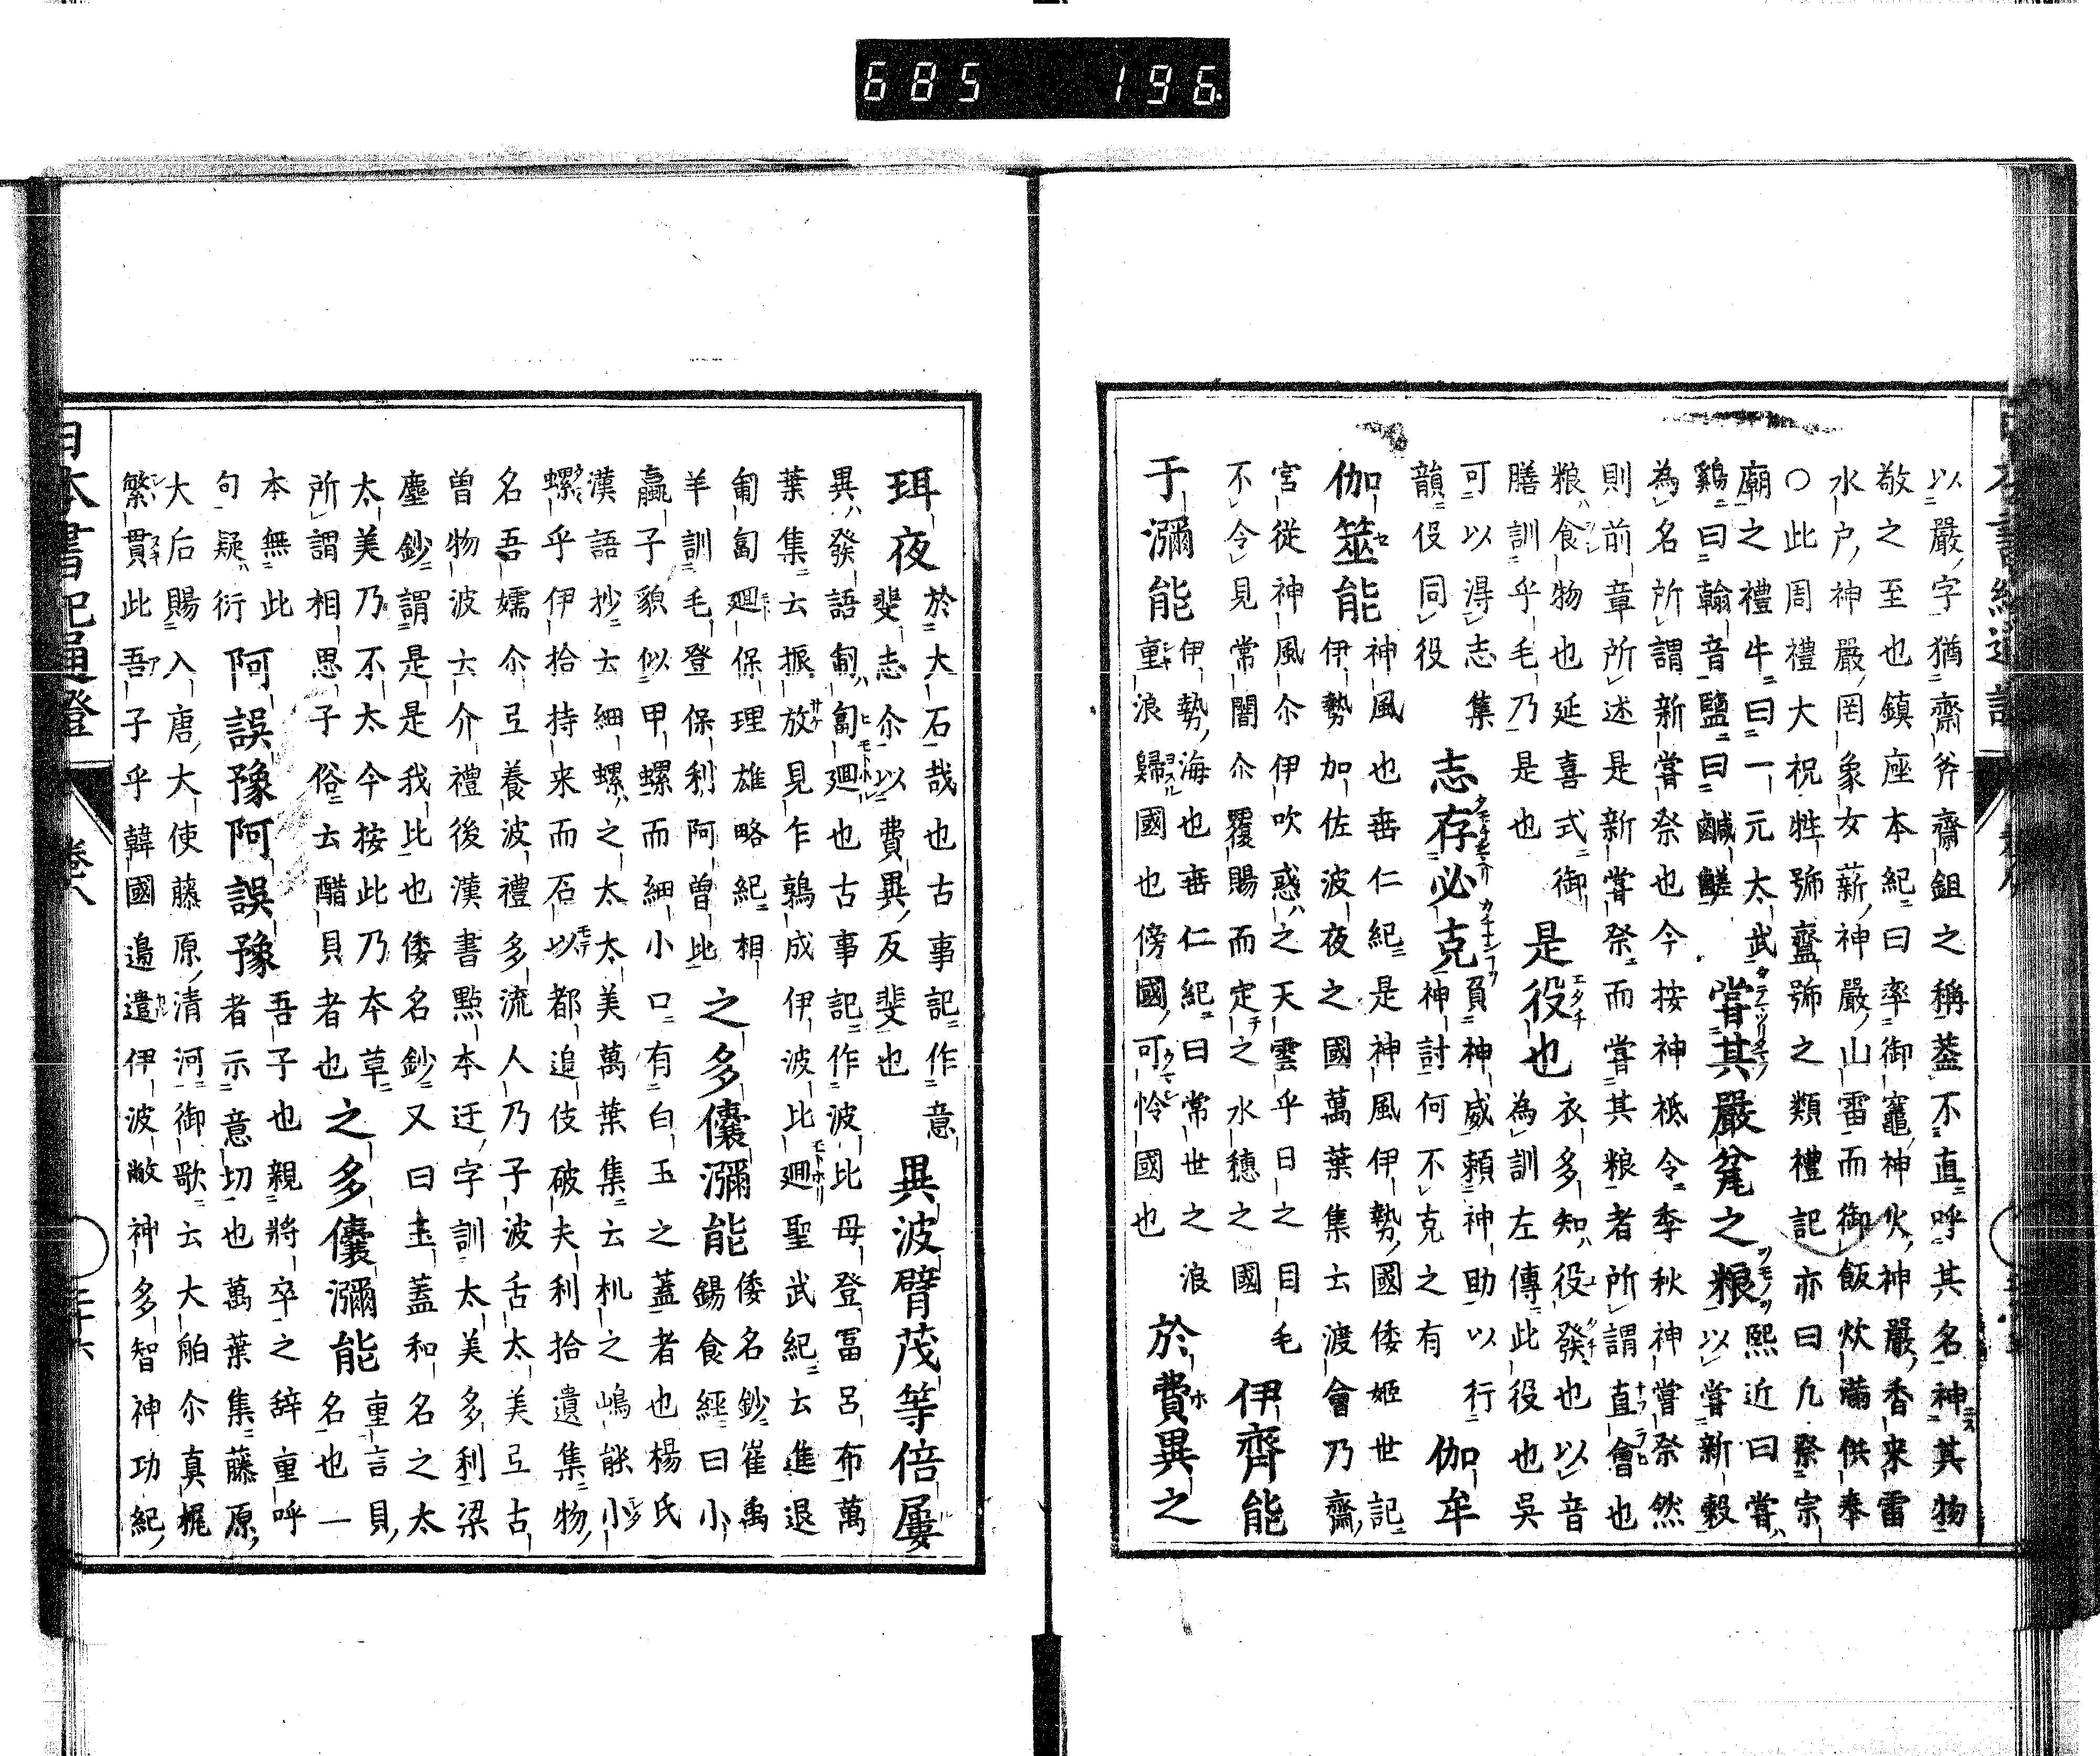 685 196
以嚴字猶齋斧齋鉏之稱蓋不直呼其名神其物
敬之至也鎮座本紀曰率御竈神火神嚴香来雷
水户神嚴罔象女薪神嚴山雷而御飯炊滿供奉
〇此周禮大祝牲號齍號之類禮記亦曰凡祭宗
廟之禮牛曰一元太武
雞曰翰音鹽曰鹹鹺
嘗其嚴瓮之粮
熙近曰嘗
以嘗新穀
為名所謂新嘗祭也今按神祇令季秋神嘗祭然
則前章所述是新嘗祭而嘗其粮者所謂直會也
粮食物也延喜式御
膳訓乎毛乃是也
是役也
衣多知役發也以音
為訓左傳此役也吳
可以得志集
韻伇同役
志存必克
負神威賴神助以行
神討何不克之有
伽牟
伽筮能
神風也垂仁紀是神風伊勢國倭姬世記
伊勢加佐波夜之國萬葉集云渡會乃齋
宮從神風尒伊吹惑之天雲乎日之目毛
不令見常闇尒覆賜而定之水穗之國
伊齊能
于瀰能
伊勢海也垂仁紀曰常世之浪
重浪歸國也傍國可怜國也
於費異之
珥夜
於大石哉也古事記作意
斐志尒以費異反斐也
異波臂茂等倍屢
異發語匍匐廻也古事記作波比母登冨呂布萬
葉集云振放見乍鶉成伊波比廻聖武紀云進退
匍匐廻保理雄略紀相
羊訓毛登保利阿曾比
之多儾瀰能
倭名鈔崔禹
錫食經曰小
蠃子貌似甲螺而細小口有白玉之蓋者也楊氏
漢語抄云細螺之太太美萬葉集云机之嶋能小
螺乎伊拾持来而石以都追伎破夫利拾遺集物
名吾嬬尒弖養波禮多流人乃子波舌太美弖古
曾物波云介禮後漢書點本迂字訓太美多利梁
塵鈔謂是是我比也倭名鈔又曰玉蓋和名之太
太美乃不太今按此乃本草
所謂相思子俗云醋貝者也
之多儾瀰能
重言貝
名也一
本無此
句疑衍
阿誤豫阿誤豫
吾子也親將卒之辞重呼
者示意切也萬葉集藤原
大后賜入唐大使藤原清河御歌云大舶尒真梶
繁貫此吾子乎韓國邊遣伊波敝神多智神功紀
日本書紀通證
卷八